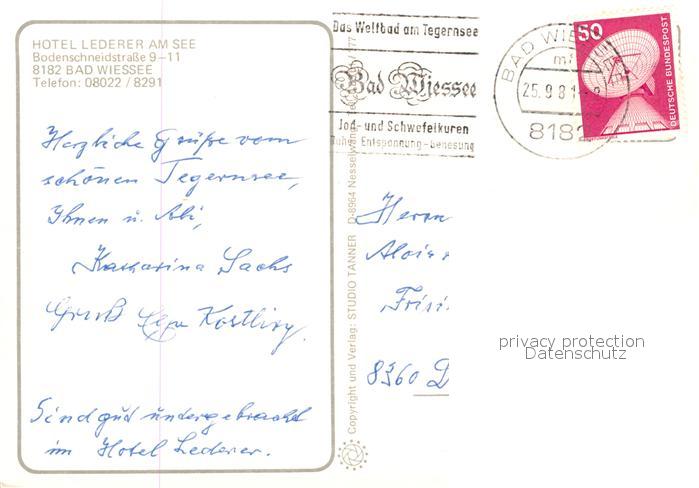 HOTEL LEDERER AM SEE
Bodenschneidstraße 9-11
8182 BAD WIESSEE
Telefon: 08022 / 8291
Herzliche Grüße vom
schönen Tegernsee,
Ihnen u. Abi,
Katharina Sachs
Gruß
Sind gut untergebracht
im Hotel Lederer.
Copyright und Verlag: STUDIO TANNER D-8964 Nesselwang
Das Weltbad am Tegernsee
Bad Wiessee
Jod- und Schwefelkuren
Ruhe Entspannung-Genesung
BAD WIES
25.9.8
8182
50
DEUTSCHE BUNDESPOST
Herrn
Alois
8360 D
privacy protection
Datenschutz